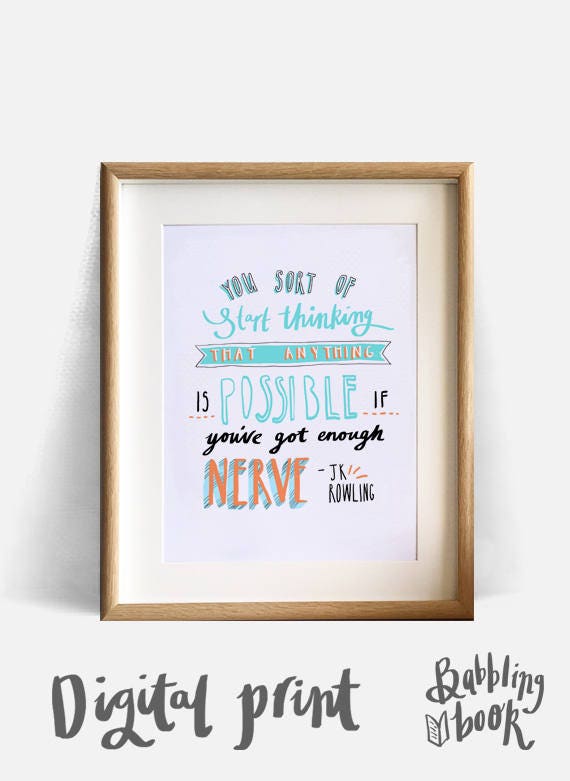 YOU SORT OF
Start thinking
THAT ANYTHING
IS POSSIBLE IF
you've got enough
NERVE - JK
ROWLING
Digital print
Babbling
book